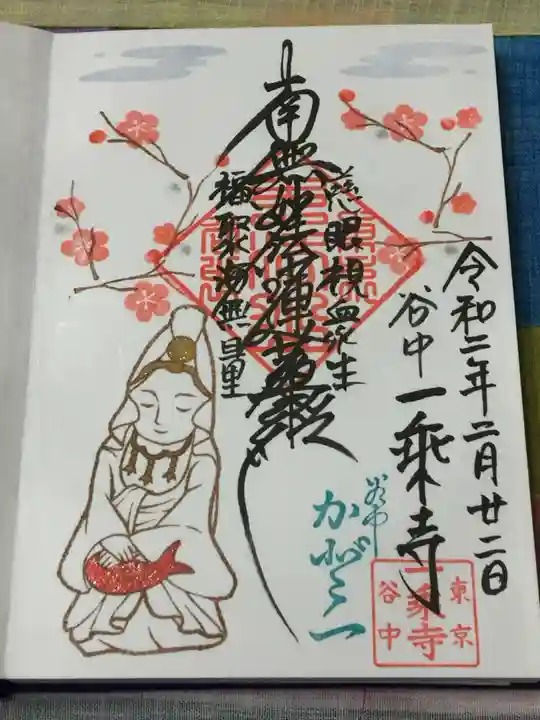 令和二年二月廿二日
谷中一乗寺
慈眼視衆生
南無妙法蓮華経
福聚海無量
谷中
東京
一乗寺
谷中